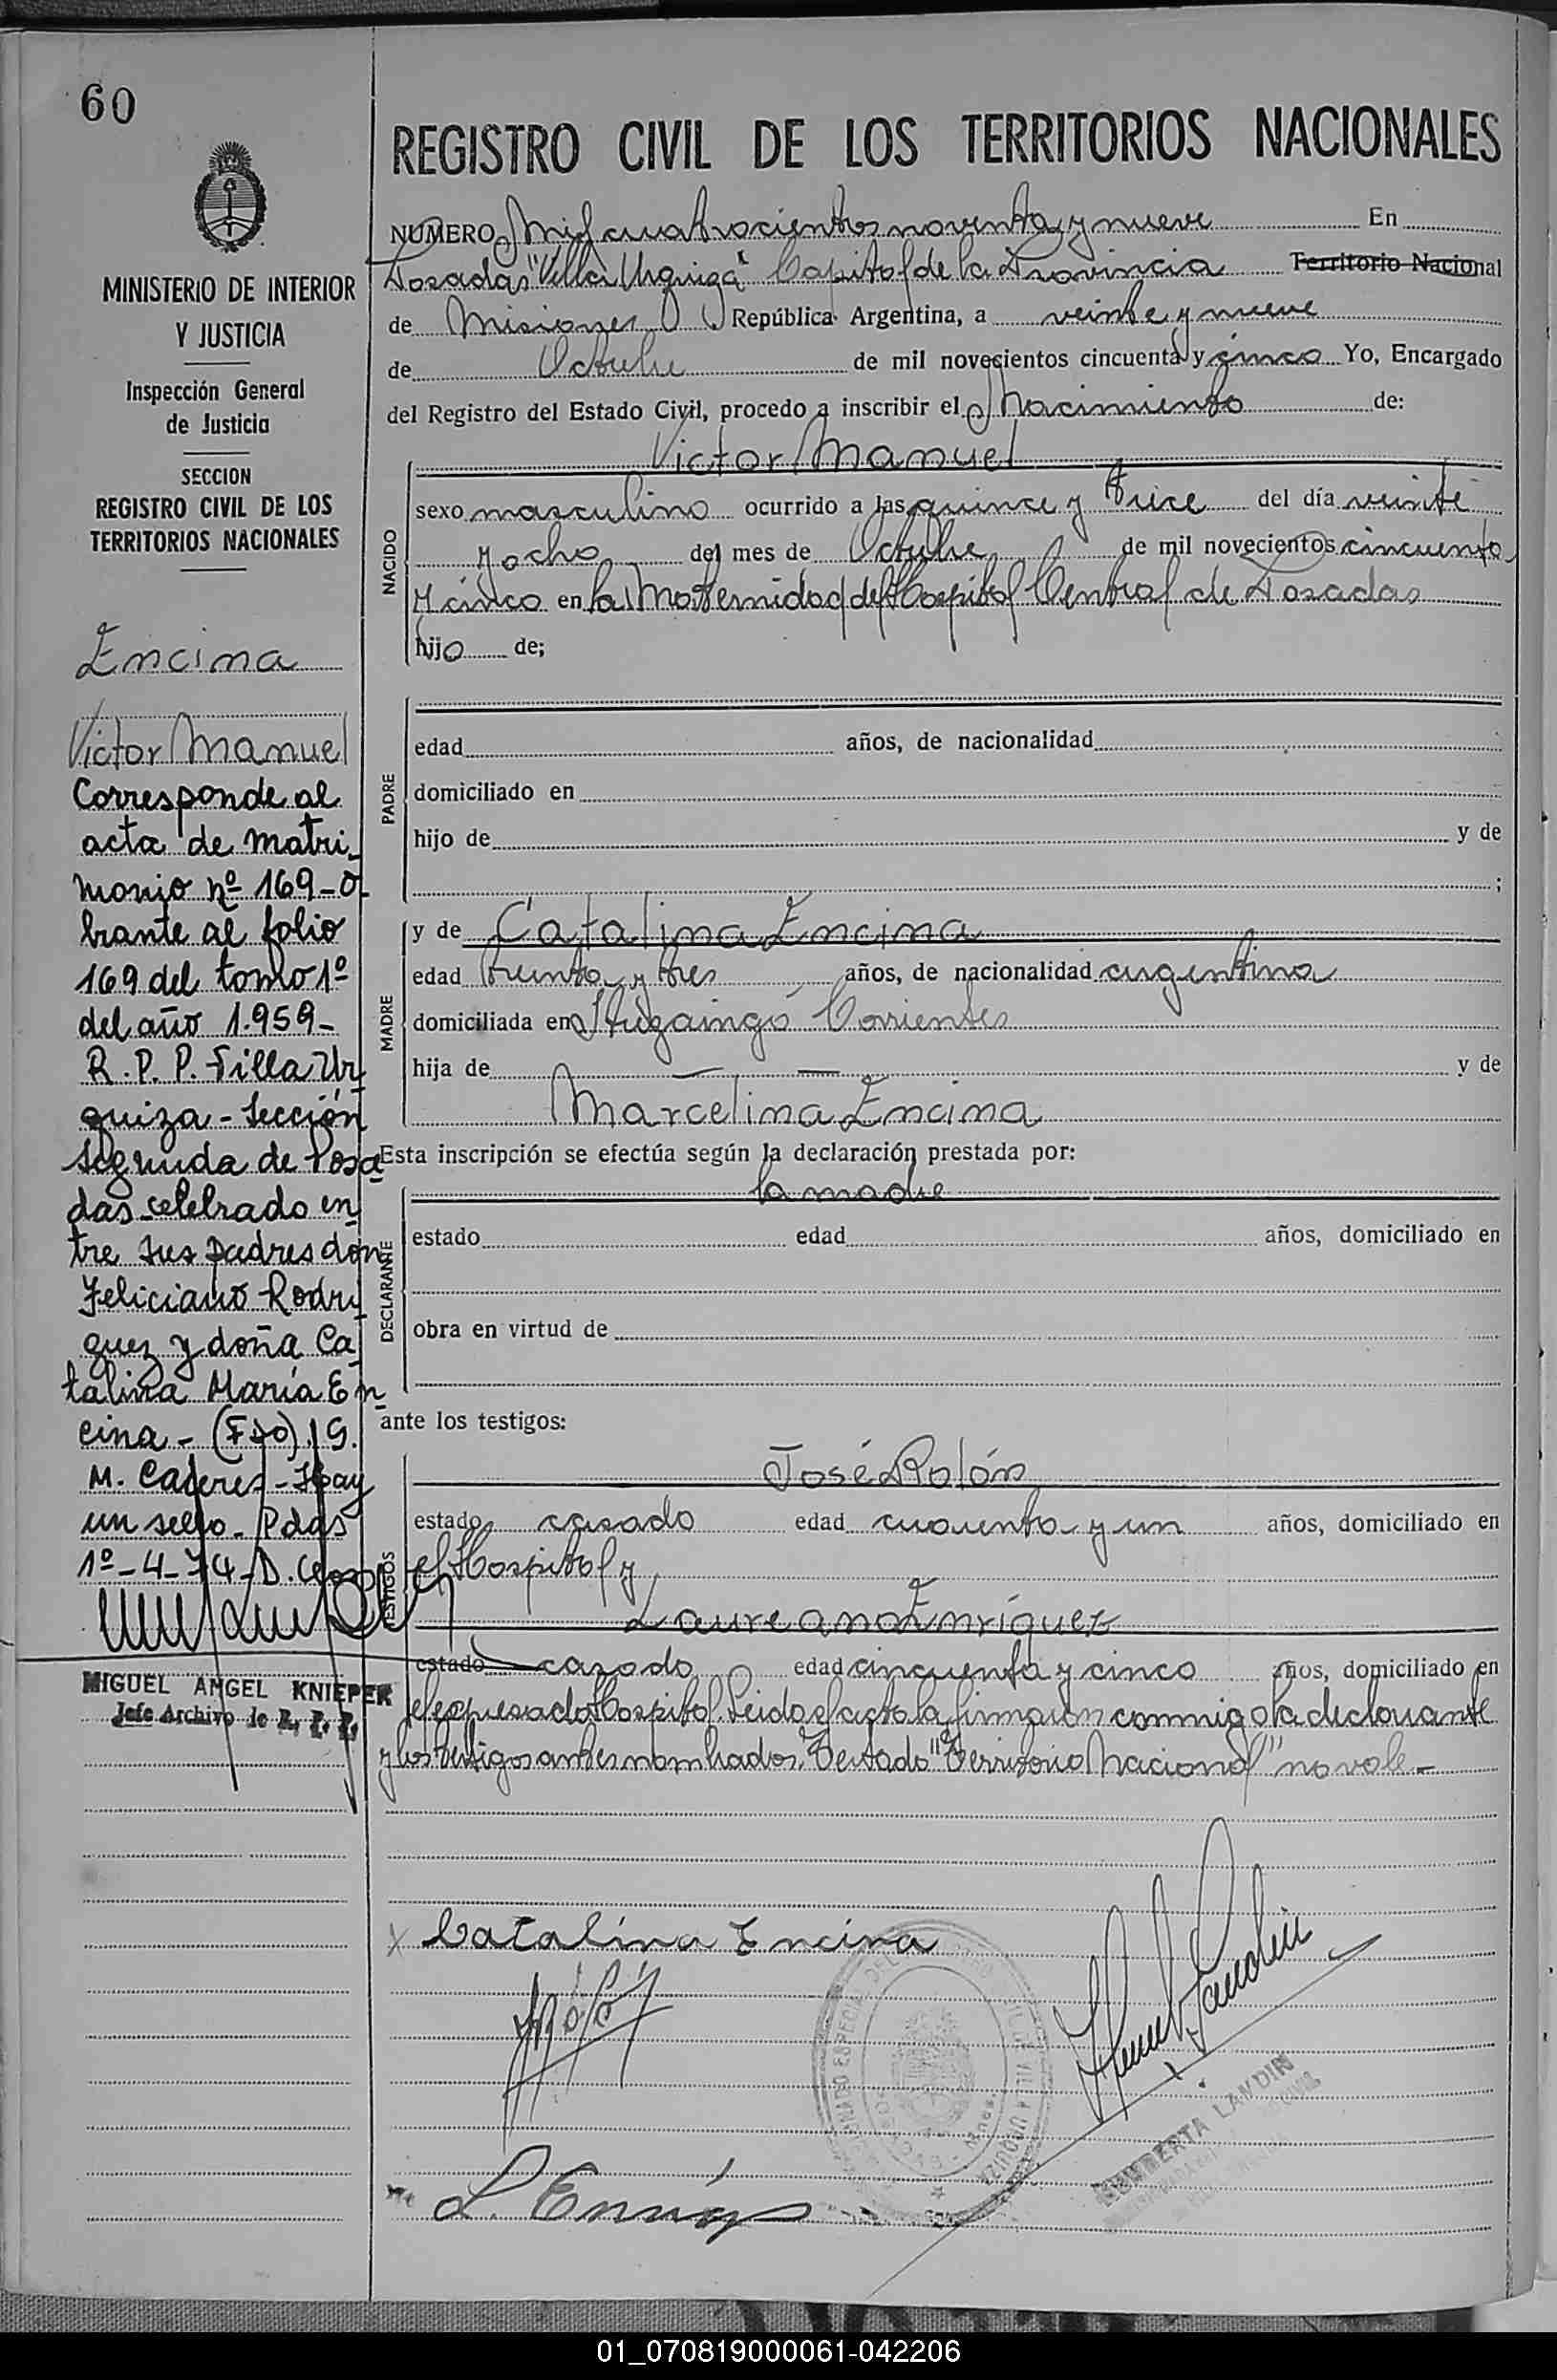 60
MINISTERIO DE INTERIOR
Y JUSTICIA
Inspección General
de Justicia
SECCION
REGISTRO CIVIL DE LOS
TERRITORIOS NACIONALES
Encina
Victor Manuel
Corresponde al
acta de matri-
monio nº 169-O-
brante al folio
169 del tomo 1º
del año 1.959-
R. P. P. Villa Ur-
quiza - Sección
Segunda de Posa-
das celebrado en-
tre sus padres don
Feliciano Rodri-
guez y doña Ca-
talina María En-
cina - (Fdo) G.
M. Caceres - Hay
un sello. Pdas
1º-4-74-D.
MIGUEL ANGEL KNIEPER
Jefe Archivo de R. P. P.
REGISTRO CIVIL DE LOS TERRITORIOS NACIONALES
NUMERO Mil cuatrocientos noventa y nueve En
Posadas "Villa Urquiza" Capital de la Provincia Territorio Nacional
de Misiones República Argentina, a veinte y nueve
de Octubre de mil novecientos cincuenta y cinco Yo, Encargado
del Registro del Estado Civil, procedo a inscribir el Nacimiento de:
Victor Manuel
NACIDO
sexo masculino ocurrido a las quince y trice del día veinte
y ocho del mes de Octubre de mil novecientos cincuenta
y cinco en la Maternidad del Hospital Central de Posadas
hijo de;
PADRE
edad años, de nacionalidad
domiciliado en
hijo de y de
;
MADRE
y de Catalina Encina
edad treinta y tres años, de nacionalidad argentina
domiciliada en Ituzaingó Corrientes
hija de — — y de
Marcelina Encina
Esta inscripción se efectúa según la declaración prestada por:
la madre
DECLARANTE
estado edad años, domiciliado en
obra en virtud de
ante los testigos:
José Rolón
TESTIGOS
estado casado edad cuarenta y un años, domiciliado en
el Hospital y
Laureano Enríquez
estado casado edad cincuenta y cinco años, domiciliado en
el expresado Hospital. Leida el acta la firmaron conmigo la declarante
y los testigos antes nombrados. Testado "Territorio Nacional" no vale.-
x Catalina Encina
L.
VILLA URQUIZA
HUMBERTA LANDIN
01_070819000061-042206